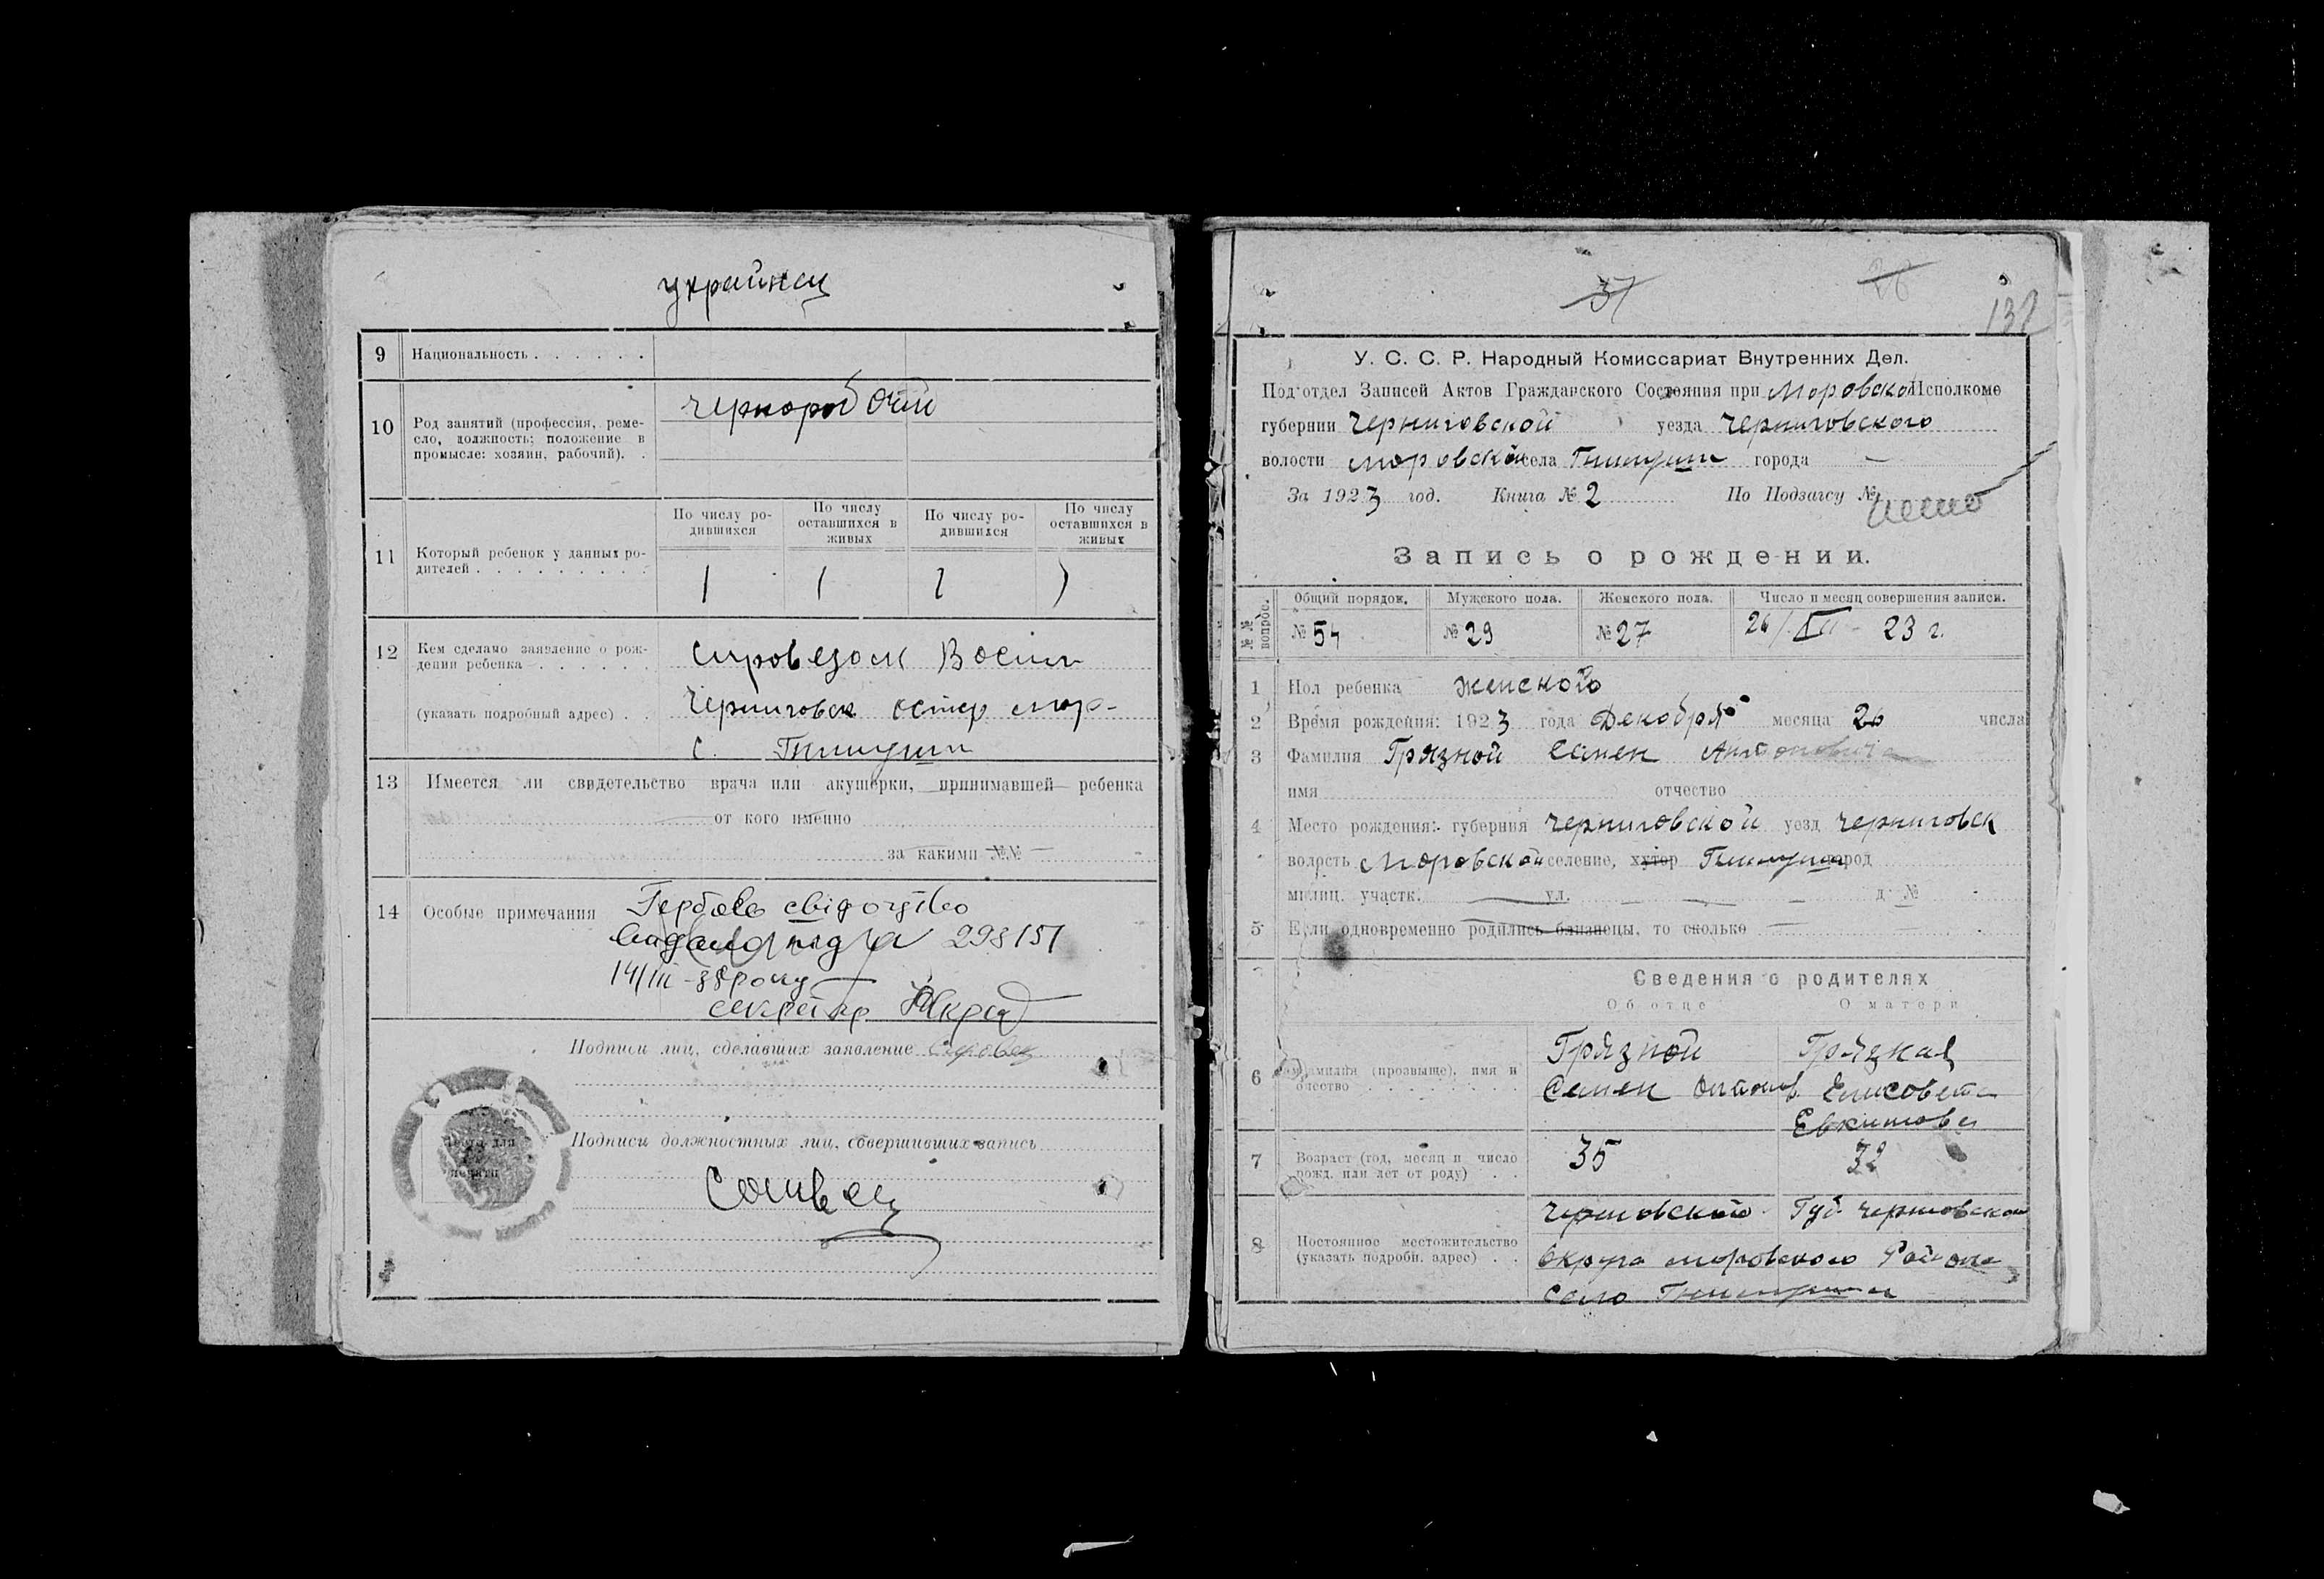 украинец
9 Национальность . . . . . .
10 Род занятий (профессия, реме-
сло, должность; положение в
промысле: хозяин, рабочий). .
чернорабочий
11 Который ребенок у данных ро-
дителей . . . . . . . . .
По числу ро-
дившихся
По числу
оставшихся в
живых
По числу ро-
дившихся
По числу
оставшихся в
живых
1 1 1 1
12 Кем сделано заявление о рож-
дении ребенка . . . . . .
(указать подробный адрес) . .
Черниговск остер мор-
с.
13 Имеется ли свидетельство врача или акушерки, принимавшей ребенка
от кого именно
за какими №№
14 Особые примечания
Гербове свідоцтво
298151
14/III-38 року
секретар
Подписи лиц, сделавших заявление
Место для
печати
Подписи должностных лиц, совершивших запись
37
28
132
У. С. С. Р. Народный Комиссариат Внутренних Дел.
Под'отдел Записей Актов Гражданского Состояния при Моровском Исполкоме
губернии Черниговской уезда Черниговского
волости Моровской села города —
За 1923 год. Книга № 2 По Подзагсу №
Запись о рождении.
№№ вопрос.
Общий порядок.
№ 54
Мужского пола.
№ 29
Женского пола.
№ 27
Число и месяц совершения записи.
26/XII - 23 г.
1 Пол ребенка женского
2 Время рождения: 1923 года Декобря месяца 26 числа
3 Фамилия Грязной Семен Антонович
имя отчество
4 Место рождения: губерния Черниговской уезд Черниговск
волость Моровской селение, хутор город
милиц. участк. ул. д. №
5 Если одновременно родились близнецы, то сколько
Сведения о родителях
Об отце О матери
6 Фамилия (прозвище), имя и
отчество . . . . . . . .
Грязной
Семен Антонов
Грязная
Елисовета
Евхимова
7 Возраст (год, месяц и число
рожд. или лет от роду) . .
35 32
8 Постоянное местожительство
(указать подробн. адрес) . .
Губ. Черниговской
округа моровского Района
село